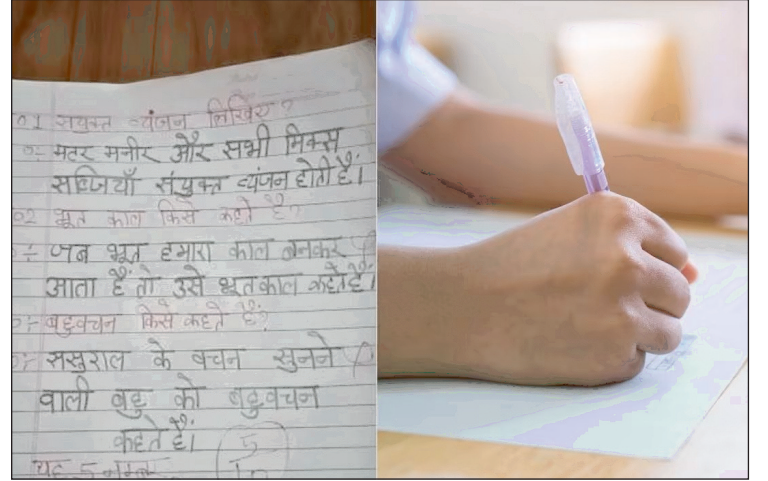 01 सयुक्त व्यंजन लिखिए ?
मटर पनीर और सभी मिक्स
सब्जियाँ संयुक्त व्यंजन होती हैं।
02 भूत काल किसे कहते है?
जब भूत हमारा काल बनकर
आता है तो उसे भूतकाल कहते है।
बहुवचन किसे कहते हैं?
ससुराल के वचन सुनने
वाली बहु को बहुवचन
कहते हैं।
5
यह 5 नम्बर